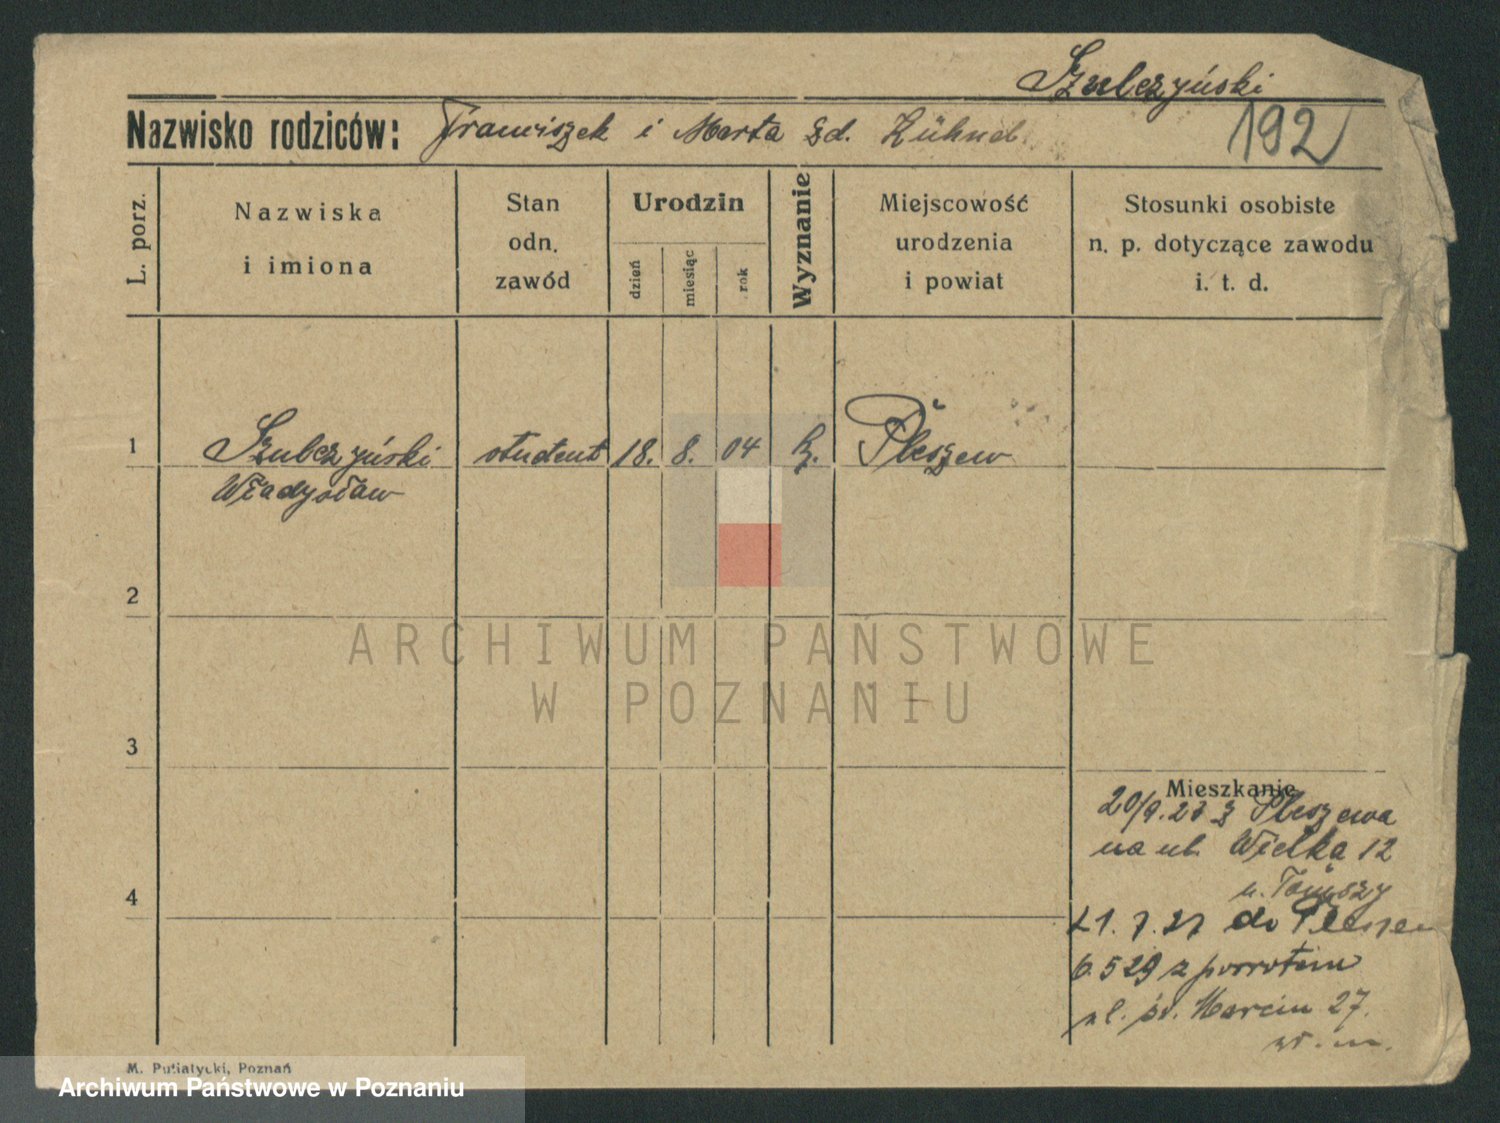 Szulczyński
Nazwisko rodziców: Franciszek i Marta zd. Kühnel
192
L. porz.
Nazwiska
i imiona
Stan
odn.
zawód
Urodzin
dzień
miesiąc
rok
Wyznanie
Miejscowość
urodzenia
i powiat
Stosunki osobiste
n. p. dotyczące zawodu
i. t. d.
1 Szulczyński student 18. 8. 04 Pleszew
Władysław
2
3
4
Mieszkanie
20/9.23 z Pleszewa
na ul. Wielka 12
u.
21.7.27 do Pleszew
6.529 z powrotem
ul. św. Marcin 27.
M. Putiatycki, Poznań
ARCHIWUM PAŃSTWOWE
W POZNANIU
Archiwum Państwowe w Poznaniu